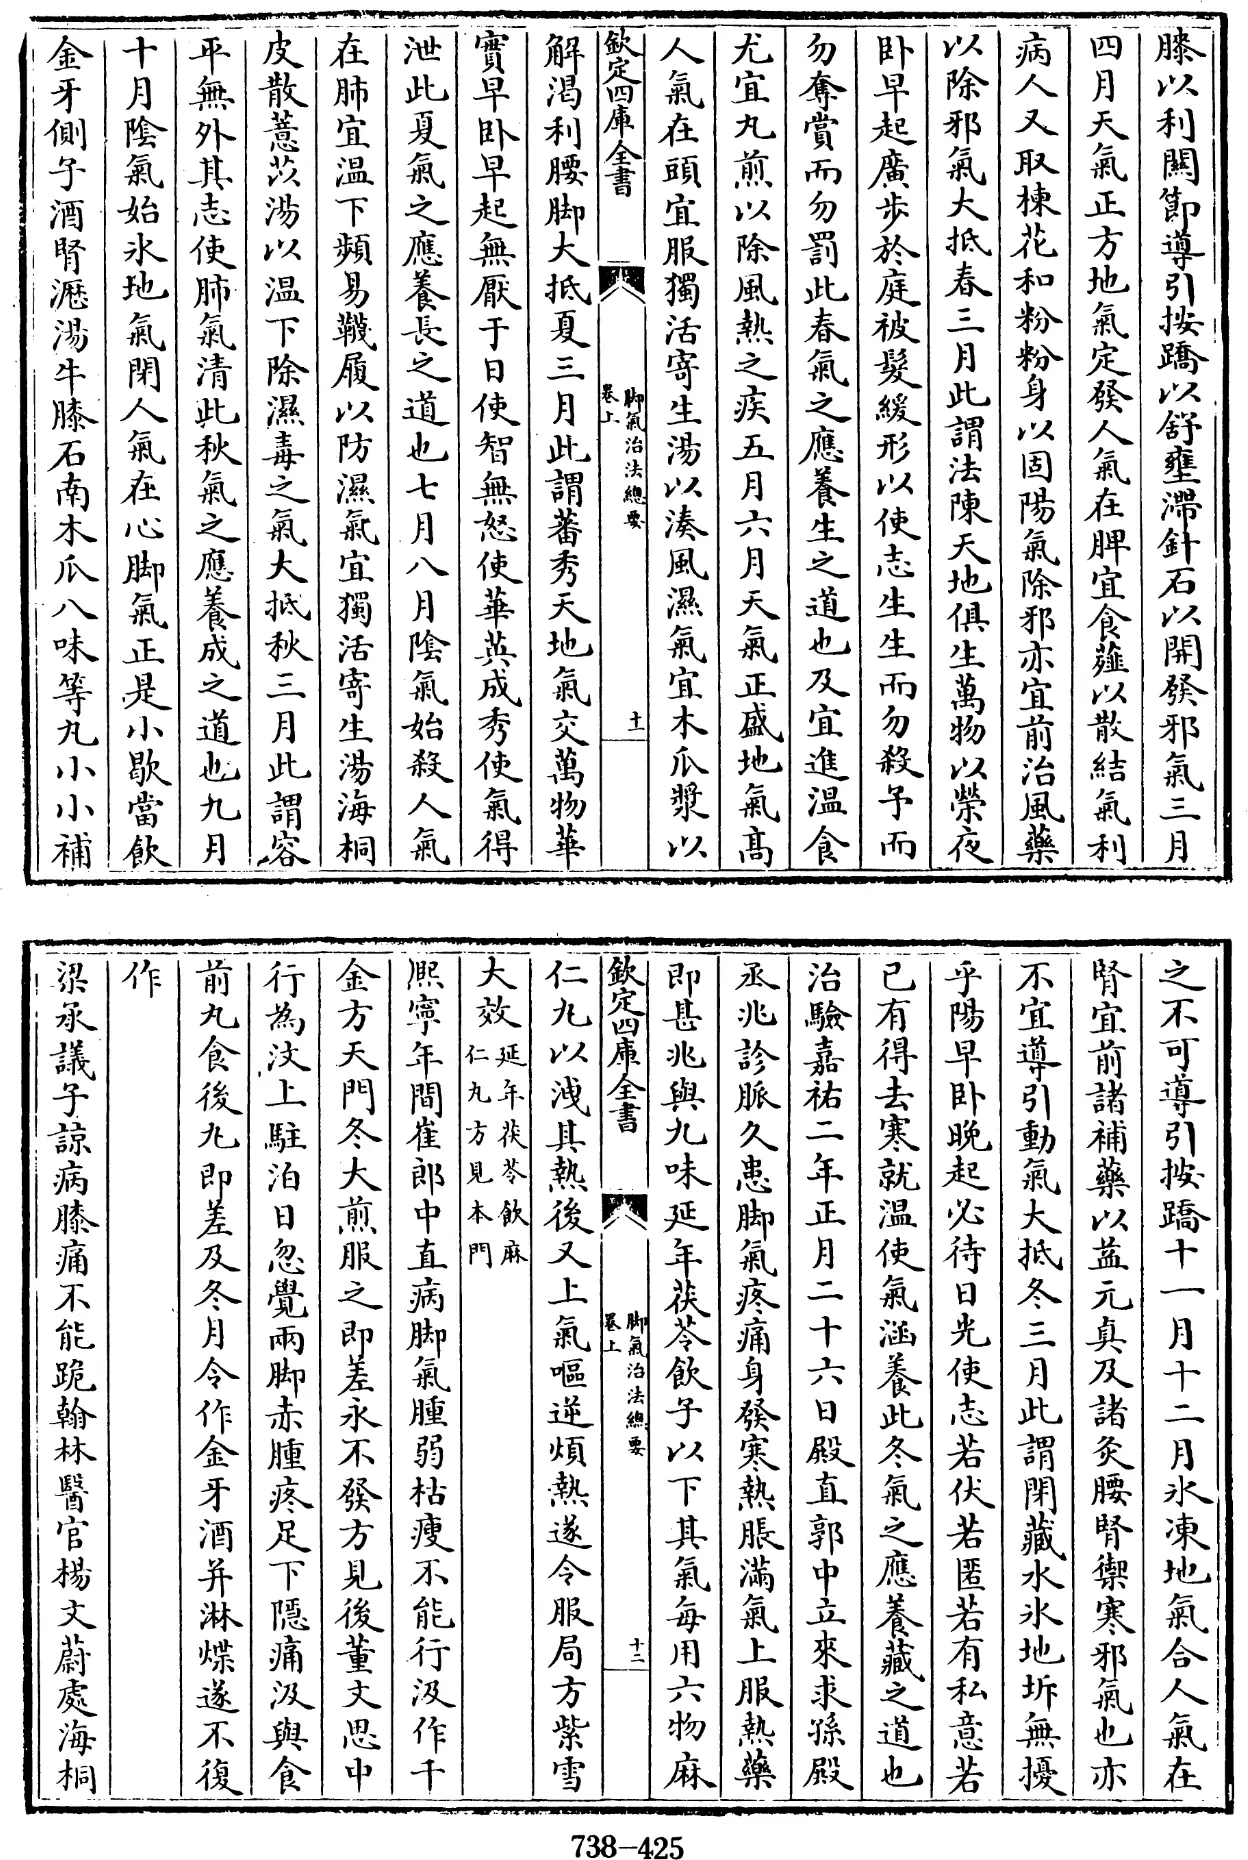 膝以利關節導引按蹻以舒壅滯針石以開發邪氣三月
四月天氣正方地氣定發人氣在脾宜食薤以散結氣利
病人又取楝花和粉粉身以固陽氣除邪亦宜前治風藥
以除邪氣大抵春三月此謂法陳天地俱生萬物以榮夜
卧早起廣步於庭被髮緩形以使志生生而勿殺予而
勿奪賞而勿罰此春氣之應養生之道也及宜進溫食
尤宜丸煎以除風熱之疾五月六月天氣正盛地氣高
人氣在頭宜服獨活寄生湯以湊風濕氣宜木瓜漿以
欽定四庫全書
脚氣治法總要
卷上
十一
解渴利腰脚大抵夏三月此謂蕃秀天地氣交萬物華
實早卧早起無厭于日使智無怒使華英成秀使氣得
泄此夏氣之應養長之道也七月八月陰氣始殺人氣
在肺宜溫下頻易韈履以防濕氣宜獨活寄生湯海桐
皮散薏苡湯以溫下除濕毒之氣大抵秋三月此謂容
平無外其志使肺氣清此秋氣之應養成之道也九月
十月陰氣始氷地氣閉人氣在心脚氣正是小歇當飲
金牙側子酒腎瀝湯牛膝石南木瓜八味等丸小小補
之不可導引按蹻十一月十二月氷凍地氣合人氣在
腎宜前諸補藥以益元真及諸灸腰腎禦寒邪氣也亦
不宜導引動氣大抵冬三月此謂閉藏水氷地坼無擾
乎陽早卧晚起必待日光使志若伏若匿若有私意若
已有得去寒就溫使氣涵養此冬氣之應養藏之道也
治驗嘉祐二年正月二十六日殿直郭中立來求孫殿
丞兆診脈久患脚氣疼痛身發寒熱脹滿氣上服熱藥
即甚兆與九味延年茯苓飲子以下其氣每用六物麻
欽定四庫全書
脚氣治法總要
卷上
十二
仁丸以洩其熱後又上氣嘔逆煩熱遂令服局方紫雪
大效延年茯苓飲麻仁丸方見本門
熈寧年間崔郎中直病脚氣腫弱枯瘦不能行汲作千
金方天門冬大煎服之即差永不發方見後董文思中
行為汶上駐泊日忽覺兩脚赤腫疼足下隱痛汲與食
前丸食後丸即差及冬月令作金牙酒并淋煠遂不復
作
梁承議子諒病膝痛不能跪翰林醫官楊文蔚處海桐
738-425